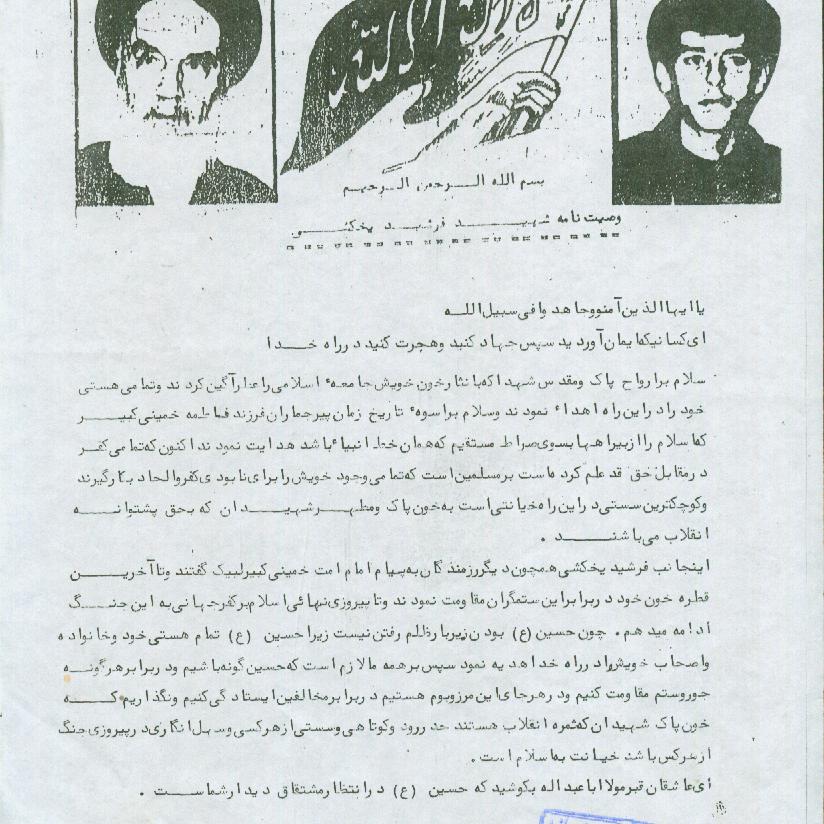 بسم الله الرحمن الرحیم
وصیت نامه شهید فرشید یخکشی
یا ایها الذین آمنوو جاهد وا فی سبیل الله
ای کسانیکه ایمان آورد ید سپس جهاد کنید وهجرت کنید د رراه خدا
سلام برارواح پاک ومقدس شهدا که با نثارخون خویش جامعه اسلامی را عطرآگین کرد ند وتمامی هستی
خود راد راین راه اهداء نمود ند وسلام براسوه تاریخ زمان پیرجماران فرزند فاطمه خمینی کبیر
که اسلام را ازبیراهها بسوی صراط مستقیم که همان خط انبیاء باشد هدایت نمود ند اکنون که تمامی کفر
د رمقابل حق قد علم کرد ه است برمسلمین است که تمامی وجود خویش را برای نابود ی کفروالحاد بکارگیرند
وکوچکترین سستی د راین راه خیانتی است به خون پاک ومطهر شهید ان که بحق پشتوانه
انقلاب می باشند .
اینجانب فرشید یخکشی همچون د یگررزمند گان به پیام امام امت خمینی کبیرلبیک گفتند وتا آخرین
قطره خون خود د ربرابراین ستمگران مقاومت نمود ند وتا پیروزی نهائی اسلام برکفرجهانی به این جنگ
اد امه مید هم . چون حسین (ع) بود ن زیربارظلم رفتن نیست زیرا حسین (ع) تمام هستی خود وخانواد ه
واصحاب خویش راد رراه خدا هد یه نمود سپس برهمه ما لازم است که حسین گونه باشیم ود ربرابرهرگونه
جوروستم مقاومت کنیم ود رهرجای این مرزوبوم هستیم د ربرابرمخالفین ایستاد گی کنیم ونگذاریم که
خون پاک شهیدان که ثمره انقلاب هستند هد ررود وکوتاهی وسستی ازهرکسی وسهل انگاری د رپیروزی جنگ
ازهرکس باشد خیانت به اسلام است .
ای عاشقان قبرمولا اباعبد اله بکوشید که حسین (ع) د رانتظارمشتقاق د ید ارشماست .